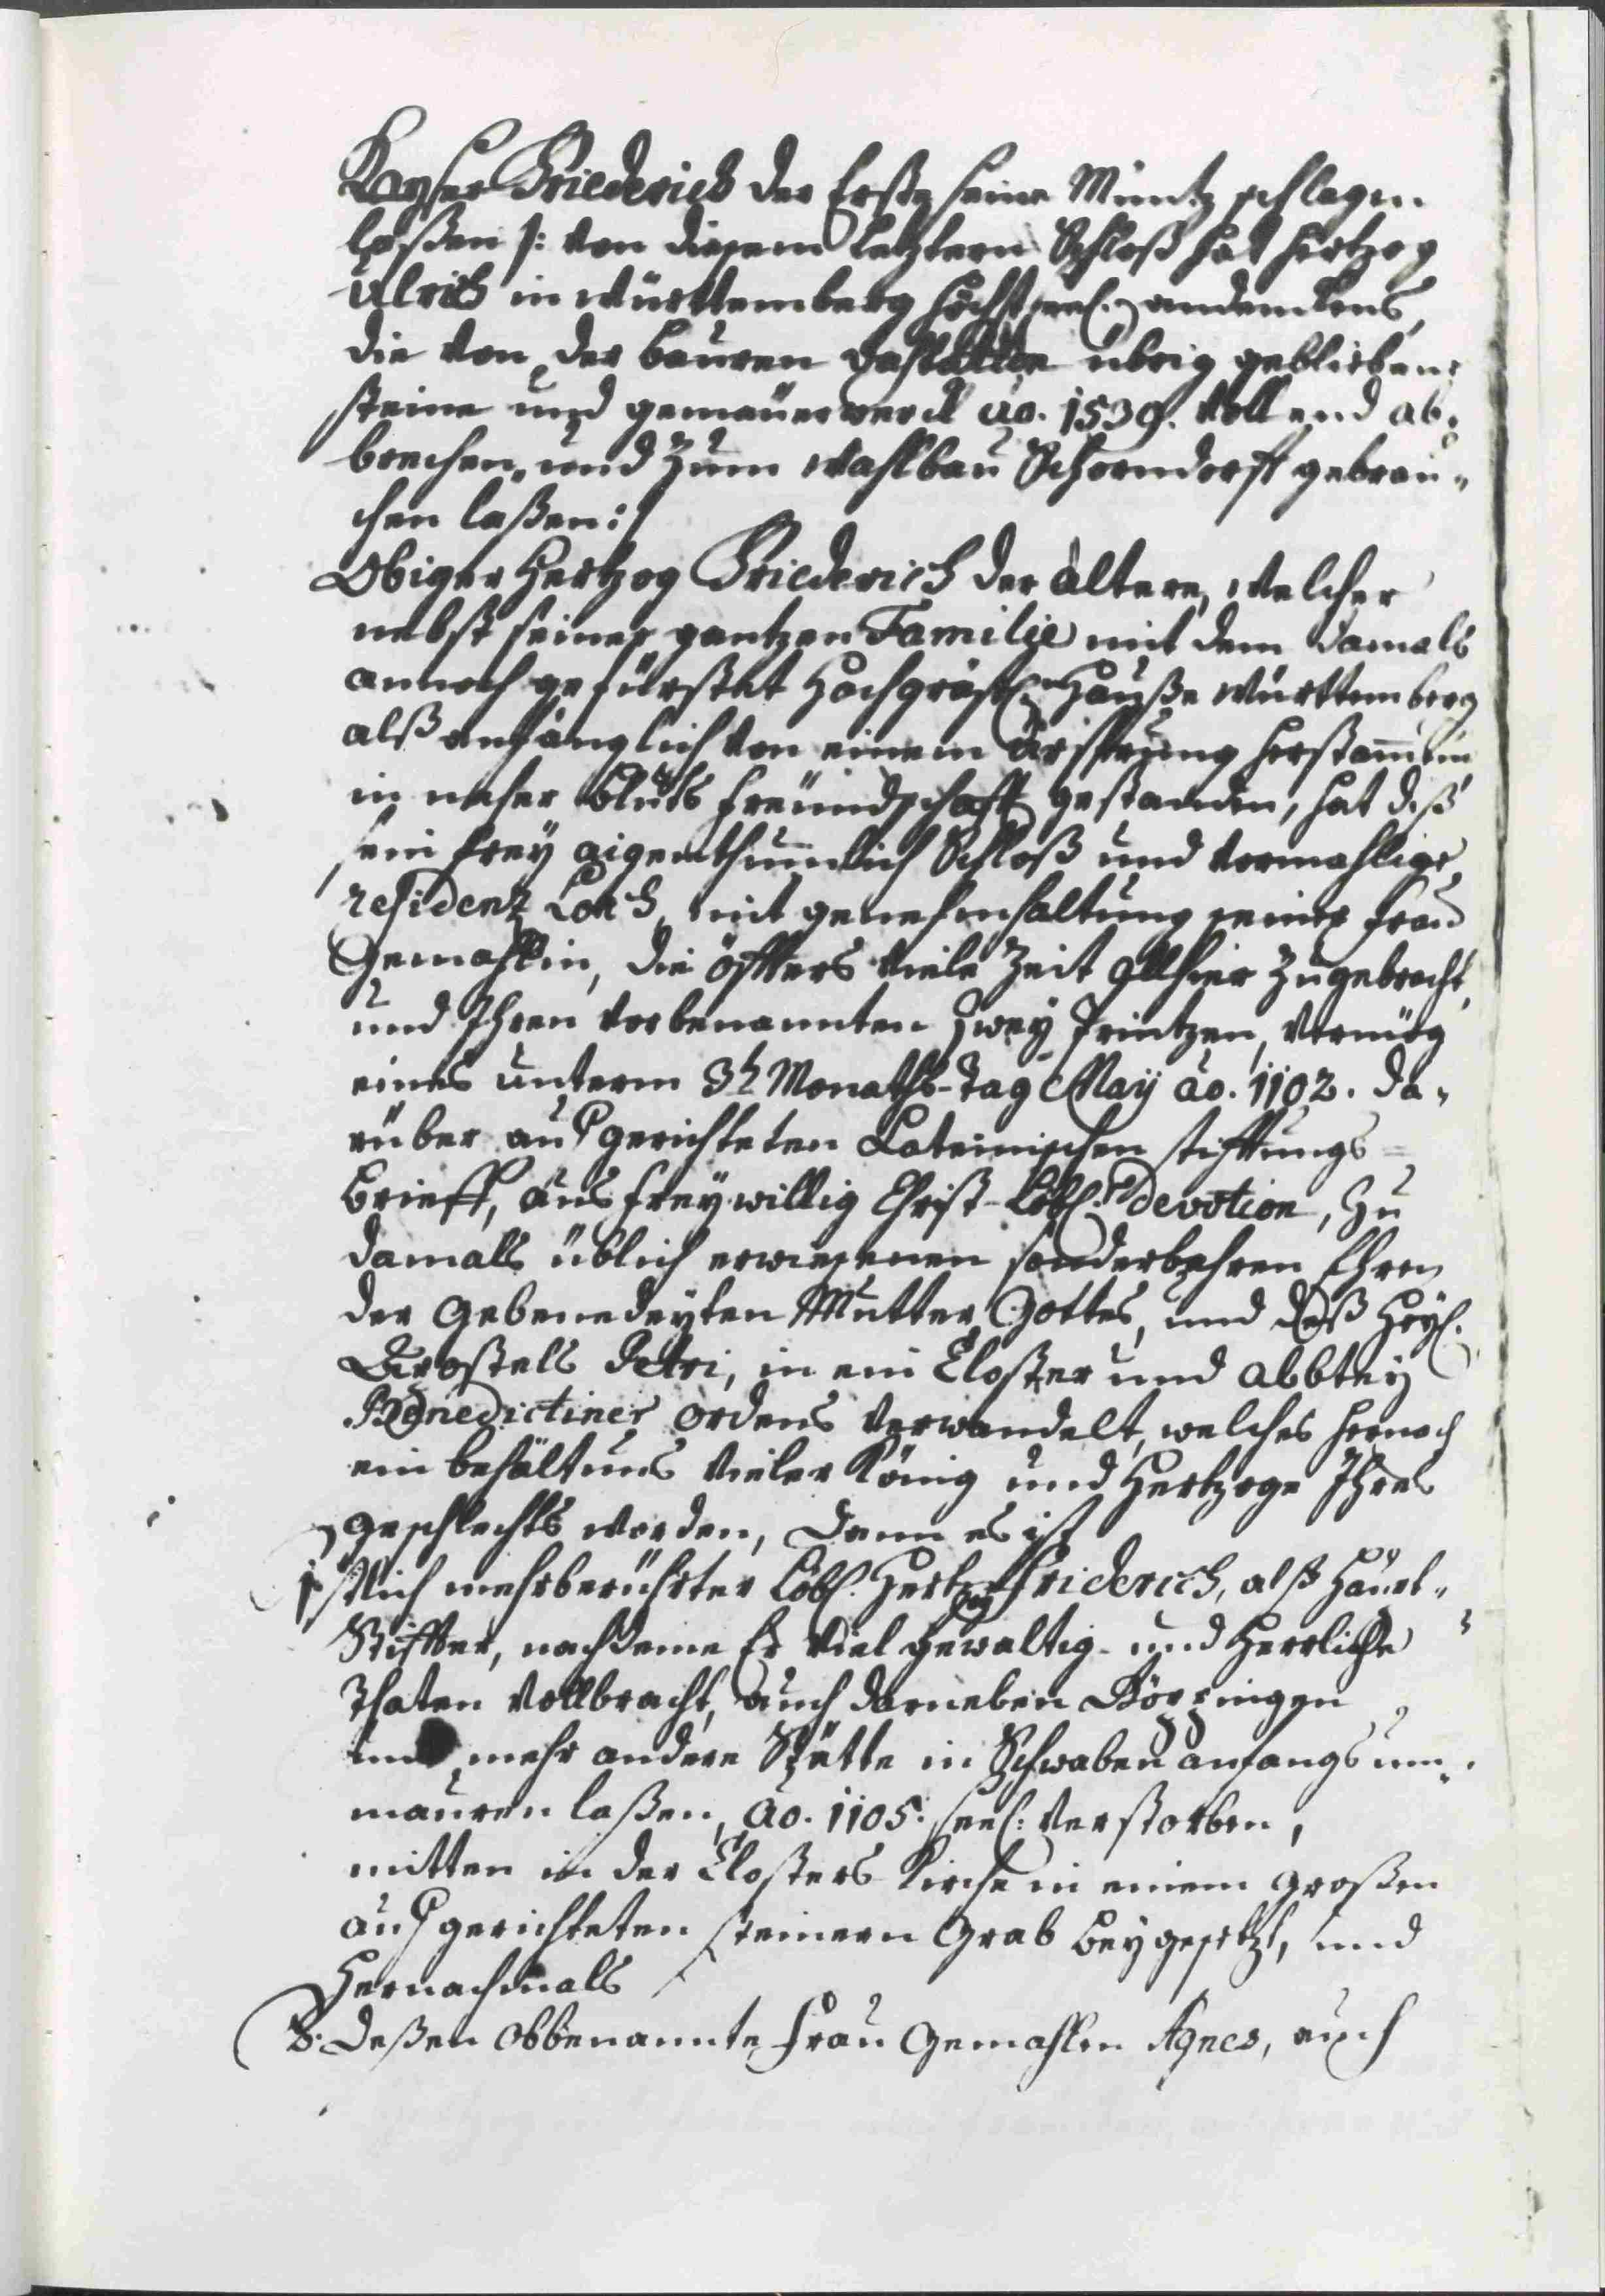 Kayser Friederich der Erste seine Müntz schlagen
laßen /: von diesem letztern Schloß hat Hertzog
Ulrich in Württemberg höchstseel. andenckens,
die von der bauren übrig gebliebene
steine und gemäuerwerck ao. 1539. vollend ab„
brechen, und zum Wahlbau Schorndorff gebrau„
chen laßen :/
Obiger Hertzog Friederich der ältere, welcher
nebst seiner gantzen Familie mit dem damals
annoch gefürstet Hochgräfl.n Hauße Württemberg
alß anfänglich von einem Ursprung herstam̄em
in naher bluts freündschafft gestanden, hat diß
sein frey eigenthumlich Schloß und vormahlige
residenz Lorch, mit genehmhaltung seiner Frau
Gemahlin, die öffters viele Zeit allhier zugebracht,
und Ihren vorbenannten zwey Printzen, vermög
eines unterm 3t. Monaths-Tag Maij ao. 1102. da„
rüber aufgerichteten Lateinischen stifftungs=
Brieff, aus freywillig Christ-Löbl. Devotion, zu
damals üblich erwiesenen sonderbahren Ehren
der Gebenedeyten Mutter Gottes, und deß Heyl.
Apostels Petri, in ein Closter und Abbtey
Benedictiner Ordens verwandelt, welches hernach
ein behältnus vieler König und Hertzoge Ihres
geschlechts worden, Dann es ist
1.stlich mehrberührter Löbl. Hertzog Friderich, alß Haupt„
Stiffter, nachdeme Er viel gewaltig- und Herrliche
Thaten vollbracht, auch darneben Göppingen
und mehr andere Stätte in Schwaben anfangs um„
mauren laßen, ao. 1105. seel: verstorben,
mitten in der Closters Kirche in einem großen
aufgerichteten steinern Grab beygesetzt, und
Hernachmals
2. deßen obbenannte Frau Gemahlin Agnes, auch